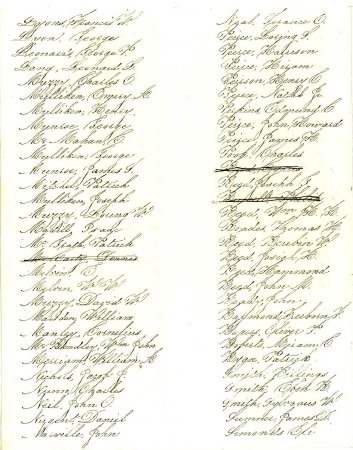 Lyons, Francis W
Lyon, George
Leonard, George H
Lang, Leonard S.
Muzzy, Charles O
Mulliken, Emery A.
Mulliken, Henry
Munroe, George
Mc Mahan, P.
Mulliken, George
Munroe, James S.
Mitchel, Patrick
Mulliken, Joseph
Muzzy, Loring W.
Mc Grath, Patrick
Mc Carty, Dennis
Melvin, C
Melvin, W W
Muzzy, David W
Marsden, William
Manley, Cornelius
Merriam, William H.
Nichols, Jacob
Nunn, Charles
Neil, John O.
Nugent, Daniel
Neville, John
Peirce, Loring S.
Peirce, Harrison
Peirce, Hiram
Person, Henry C
Peirce, Nathl
Perkins, Edmund C.
Peirce, John, Howard
Peirce, James H.
Poor, Charles
Reed, Joseph F.
Reed, Wm
Rhodes, Thomas H.
Reed, Reuben W.
Reed, Joseph H.
Reed, Hammond
Reed, John M.
Rigby, John
Raymond, Freeborn F.
Rogers, Oliver P.
Roberts, Miriam C.
Ryan, Patrick
Smith, Billings
Smith, Eben H
Smith, Sylvanus W.
Sumner, James D.
Simonds, Eli